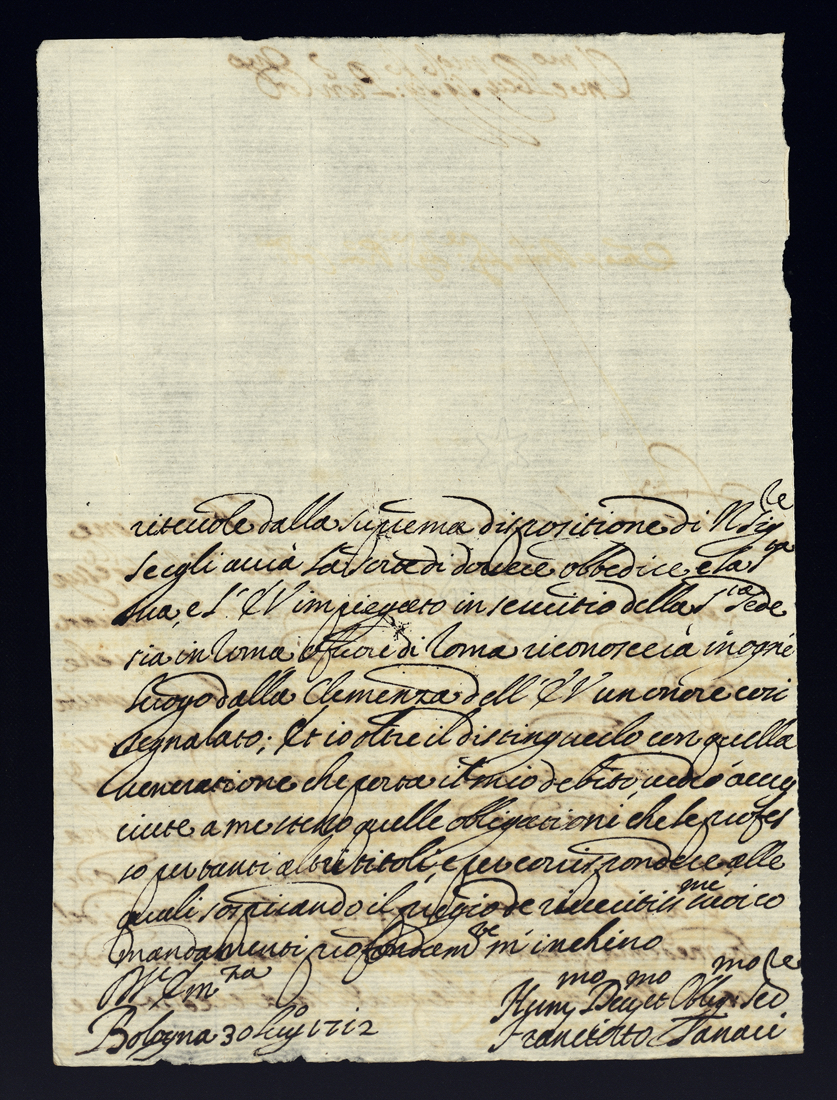 riceuole dalla suprema dispositione di N Sig.re
se egli aurà la sorte di douere obbedire e la S.ta
sua, e l'E V impiegato in seruitio della S.ta Sede
sia in Roma ò fuori di Roma riconoscerà in ogni
luogo dalla Clemenza dell'E V un onore cosi
segnalato; Et io oltre il distinguerlo con quella
ueneratione che porta il mio debito uedrò accre
sciute a me stesso quelle obligationi che le profes
so per tanti altri titoli, e per corrispondere alle
quali sospirando il pregio de riueritiss.me suoi co
mandamenti profondam.te m'inchino
Di V Em.za
Bologna 30 1712
Hum.mo Deu.mo et Oblig.mo Ser.re
Francesco Tanari